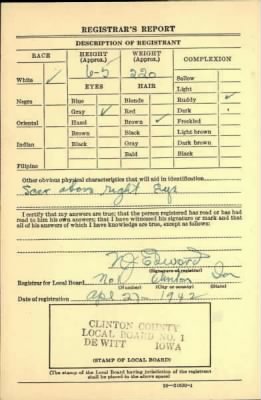 REGISTRAR'S REPORT
DESCRIPTION OF REGISTRANT
RACE HEIGHT (Approx.) WEIGHT (Approx.) COMPLEXION
White ✓ 6-5 220 Sallow
EYES HAIR Light
Negro Blue Blonde Ruddy ✓
Gray ✓ Red Dark
Oriental Hazel Brown ✓ Freckled
Brown Black Light brown
Indian Black Gray Dark brown
Bald Black
Filipino
Other obvious physical characteristics that will aid in identification
Scar above right Eye
I certify that my answers are true; that the person registered has read or has had
read to him his own answers; that I have witnessed his signature or mark and that
all of his answers of which I have knowledge are true, except as follows:
(Signature of registrar)
Registrar for Local Board No 1 Clinton Iowa
(Number) (City or county) (State)
Date of registration Apl 27 1942
CLINTON COUNTY
LOCAL BOARD NO. 1
DE WITT IOWA
(STAMP OF LOCAL BOARD)
(The stamp of the Local Board having jurisdiction of the registrant
shall be placed in the above space)